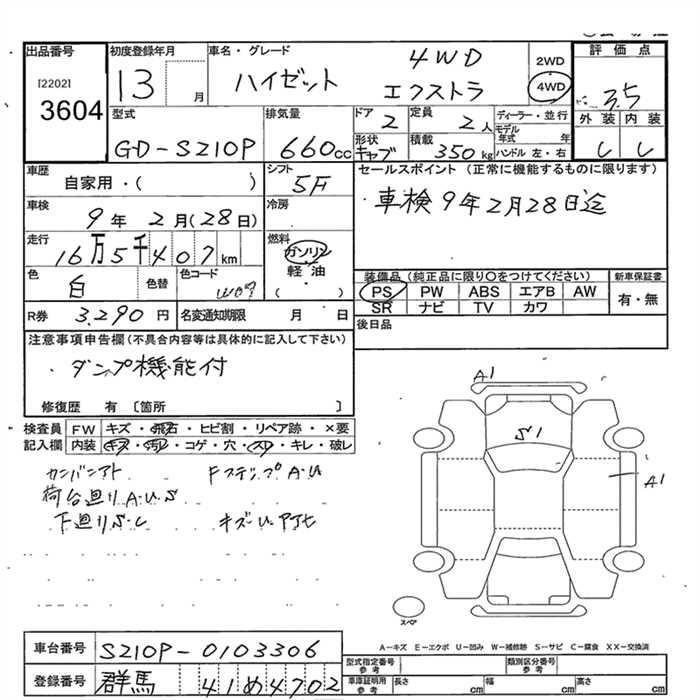 出品番号
[2202]
3604
初度登録年月
13 月
車名・グレード
4WD
ハイゼット エクストラ
2WD
4WD
評価点
3.5
外装 内装
型式
GD-S210P
排気量
660cc
ドア
2
定員
2人
形状
キャブ
積載
350kg
ディーラー・並行
モデル年式 年
ハンドル 左・右
車歴
自家用・( )
シフト
5F
車検
9年2月(28日)
冷房
走行
16万5千407km
燃料
ガソリン
軽油
( )
色
白
色替
色コード
W09
R券 3,290円
名変通知期限 月 日
セールスポイント (正常に機能するものに限ります)
車検9年2月28日迄
装備品(純正品に限り○をつけてください)
新車保証書
PS PW ABS エアB AW
有・無
SR ナビ TV カワ
後日品
注意事項申告欄(不具合内容等は具体的に記入して下さい)
・ダンプ機能付
修復歴 有 〔箇所 〕
検査員記入欄
FW キズ・飛石・ヒビ割・リペア跡・×要
内装 キズ・汚れ・コゲ・穴・スレ・キレ・破レ
カンバンアト
FステップA・U
荷台廻りA.U.S
下廻りS・C
キズU
A1
S1
A1
スペア
A-キズ E-エクボ U-凹み W-補修跡 S-サビ C-腐食 XX-交換済
車台番号 S210P-0103306
登録番号 群馬 41め4702
型式指定番号
参考
類別区分番号
参考
車庫証明用
参考
長さ cm
幅 cm
高さ cm